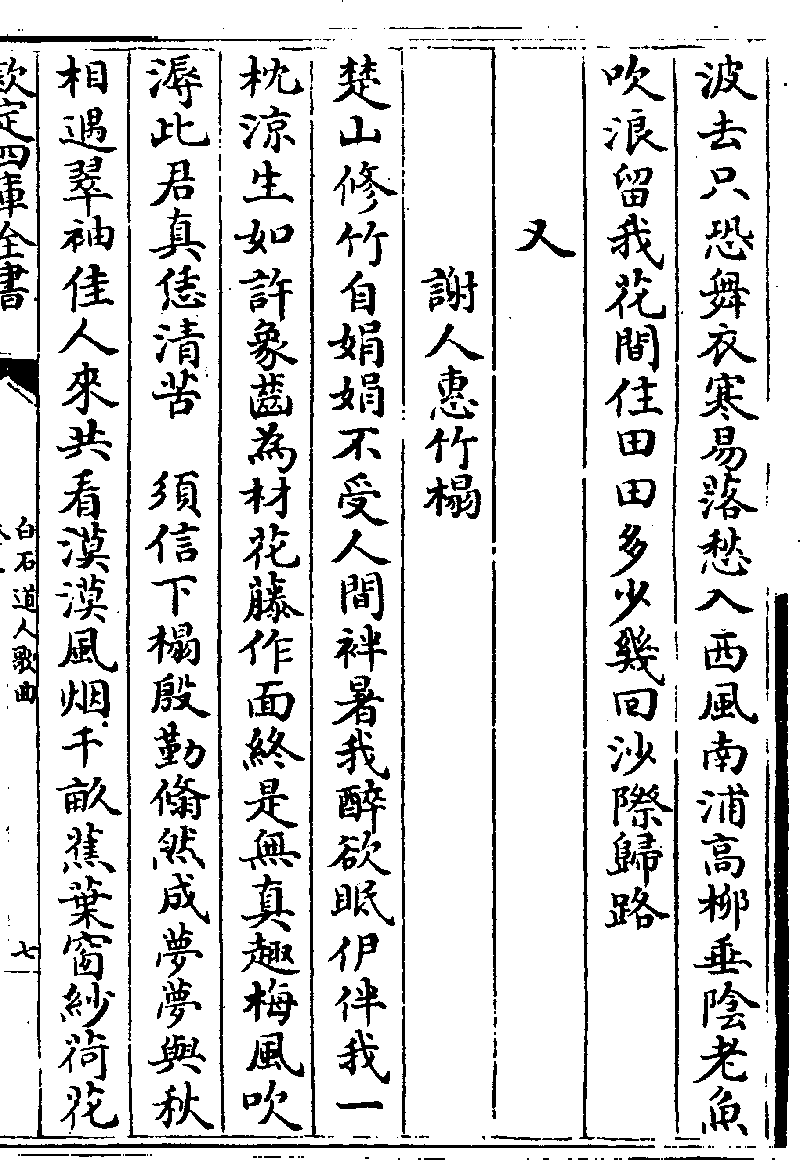 波去只恐舞衣寒易落愁入西風南浦高柳垂陰老魚
吹浪留我花間住田田多少幾回沙際歸路
又
謝人惠竹榻
楚山修竹自娟娟不受人間袢暑我醉欲眠伊伴我一
枕涼生如許象齒為材花藤作面終是無真趣梅風吹
溽此君真恁清苦　須信下榻殷勤翛然成夢夢與秋
相遇翠袖佳人來共看漠漠風烟千畝蕉葉窗紗荷花
欽定四庫全書
白石道人歌曲
七